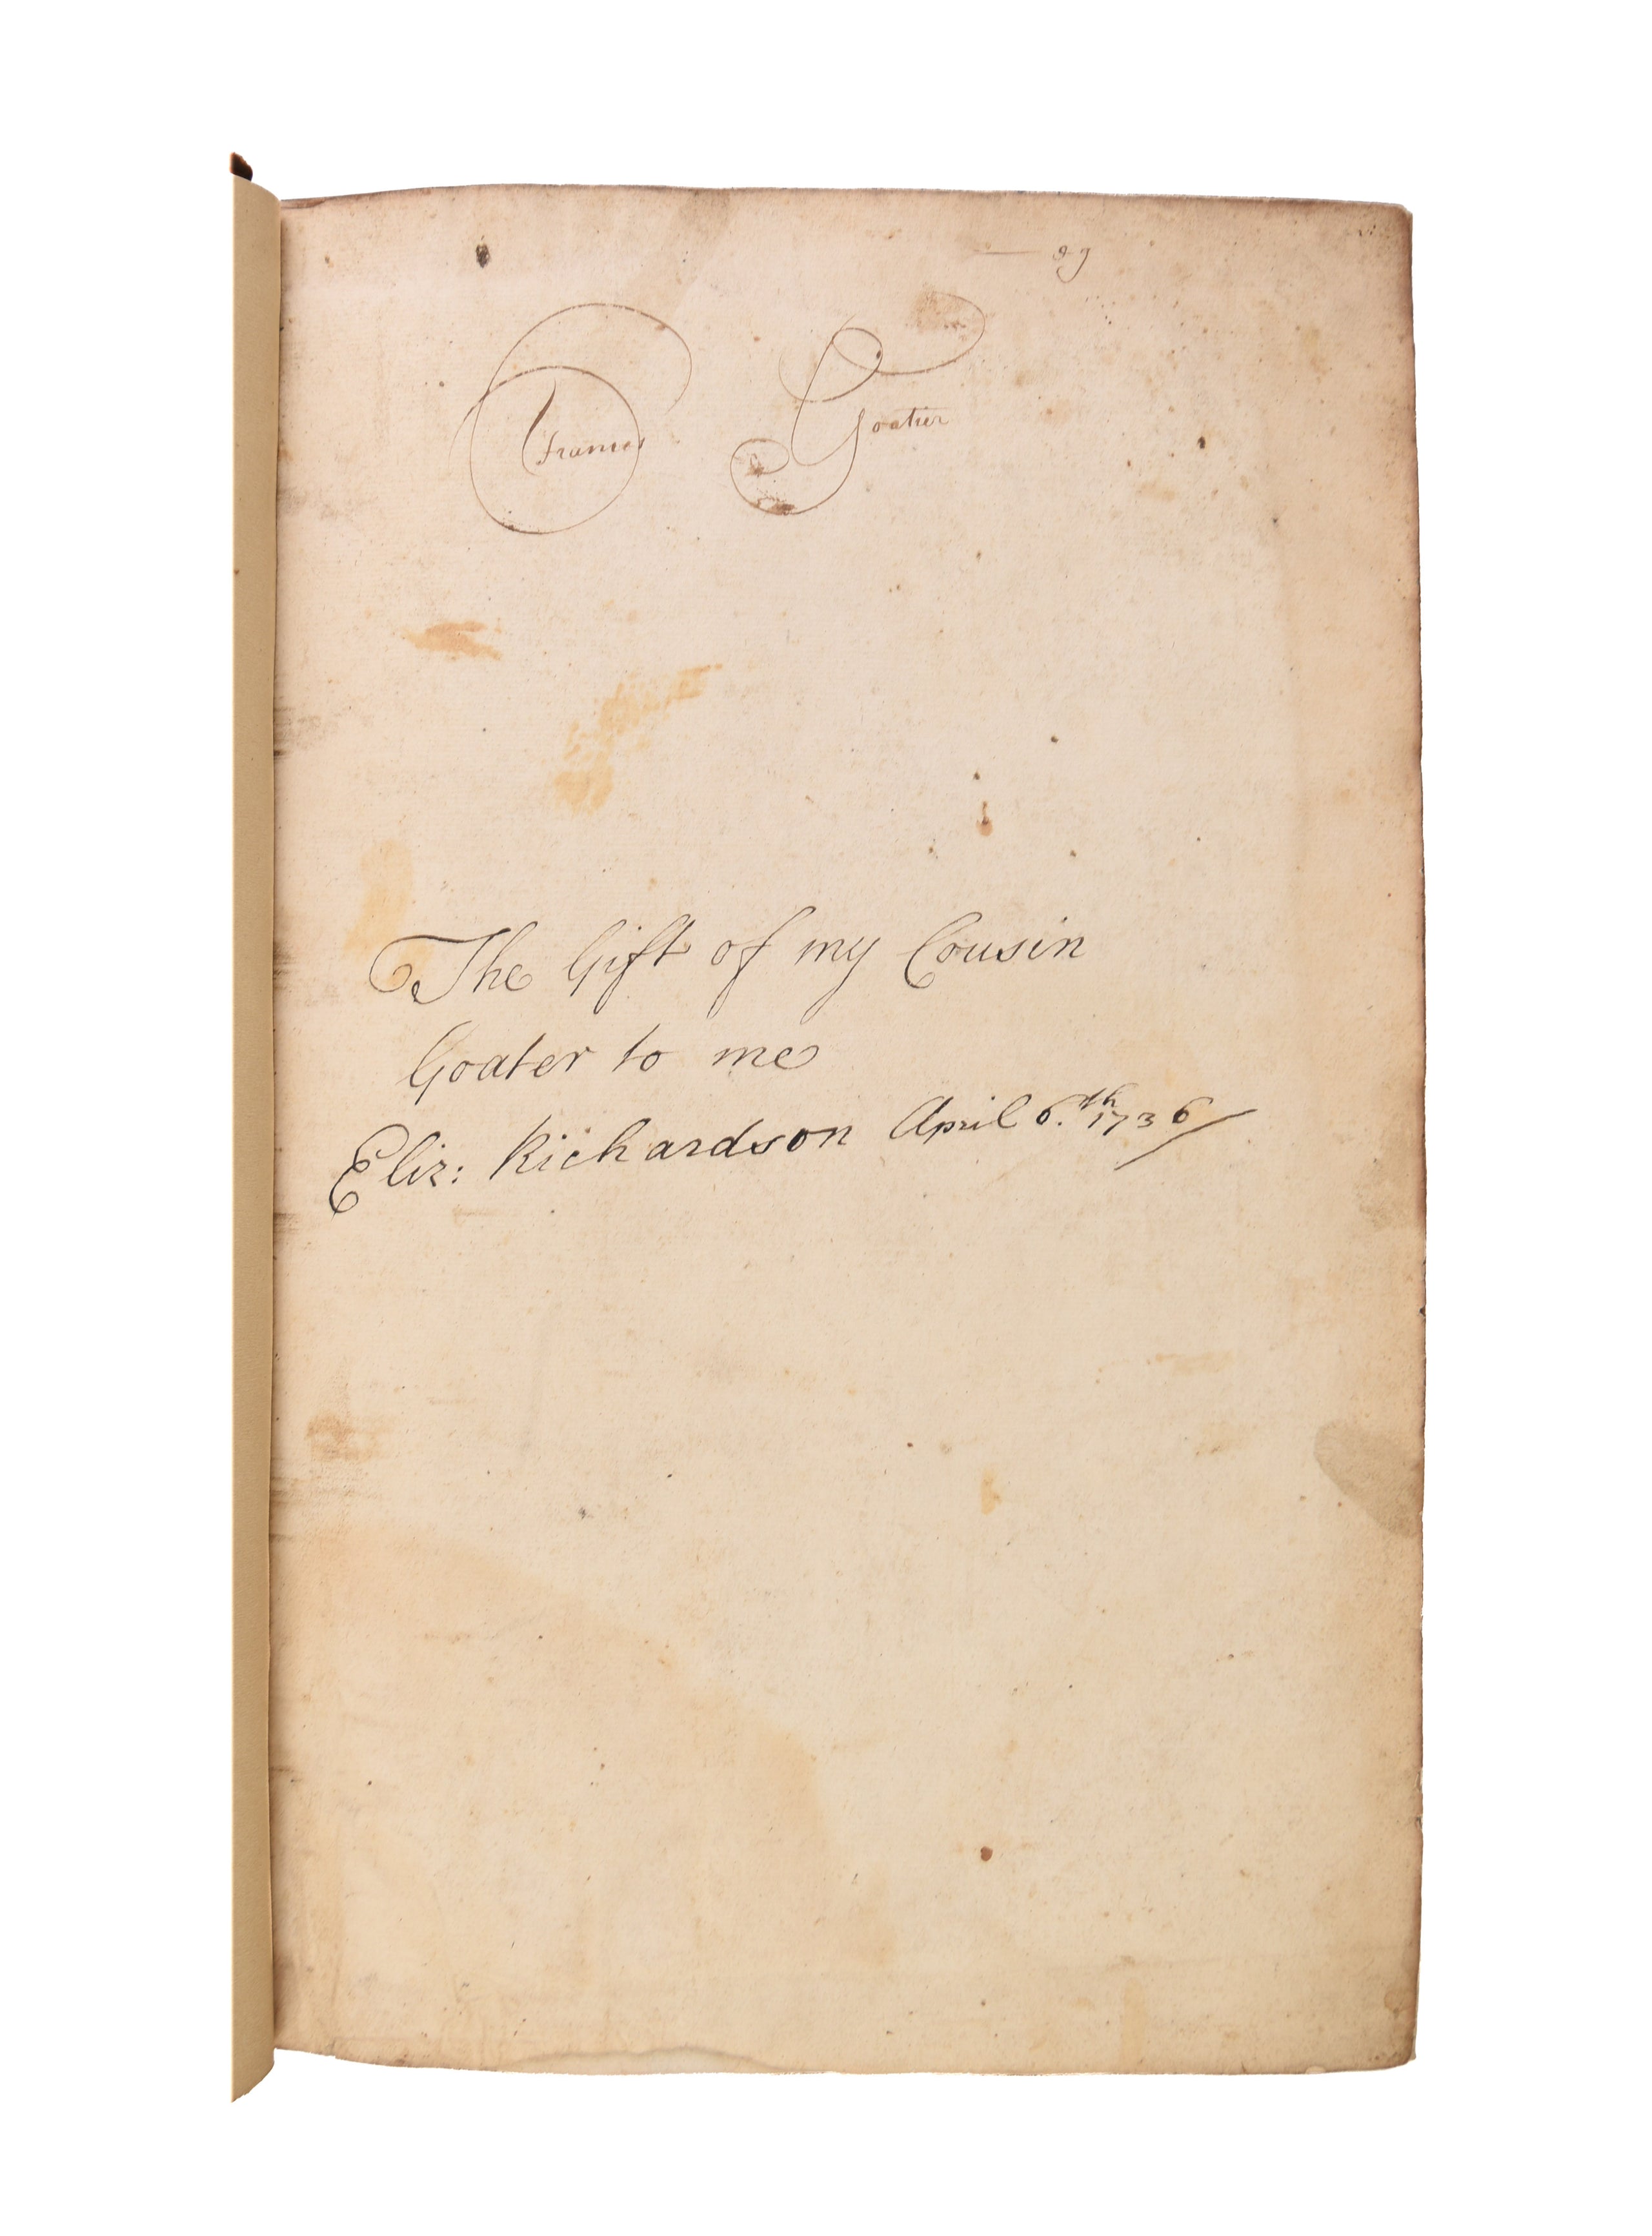 89
Frances Goater
The Gift of my Cousin
Goater to me
Eliz: Richardson April 6.th 1736